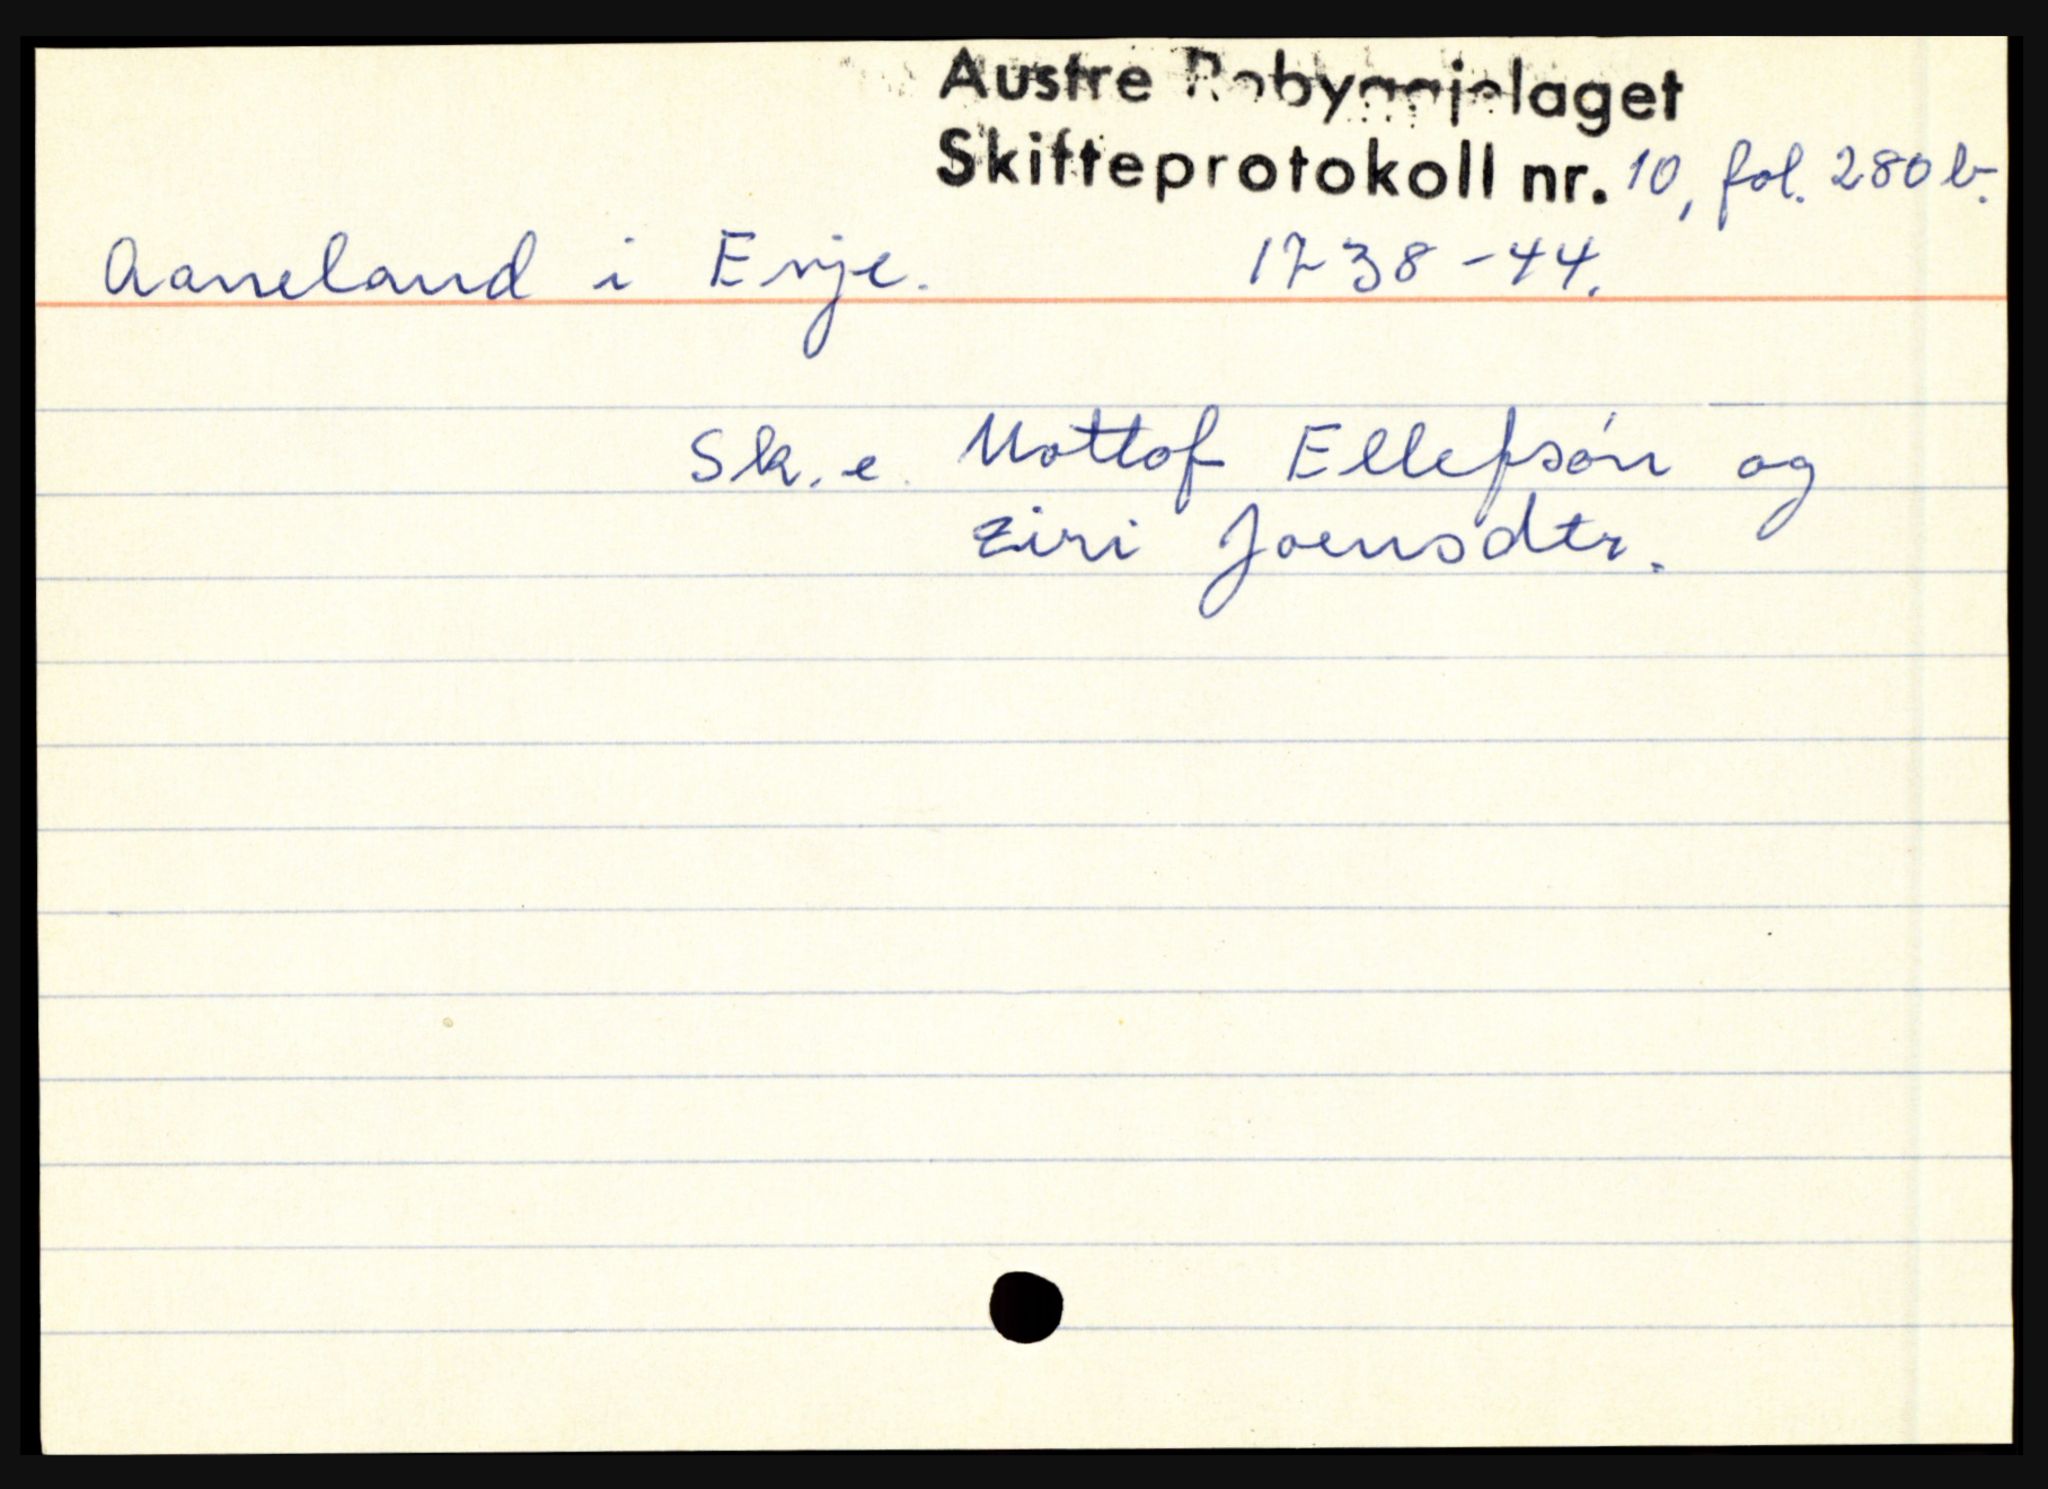 Austre Robyggjelaget
Skifteprotokoll nr. 10, fol. 280 b.
Aaneland i Evje. 1738-44.
Sk. e. Nottof Ellefsón og
Ziri Joensdtr.